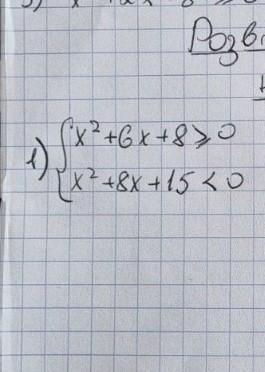 Розв
1) { x² + 6x + 8 ⩾ 0
x² + 8x + 15 < 0